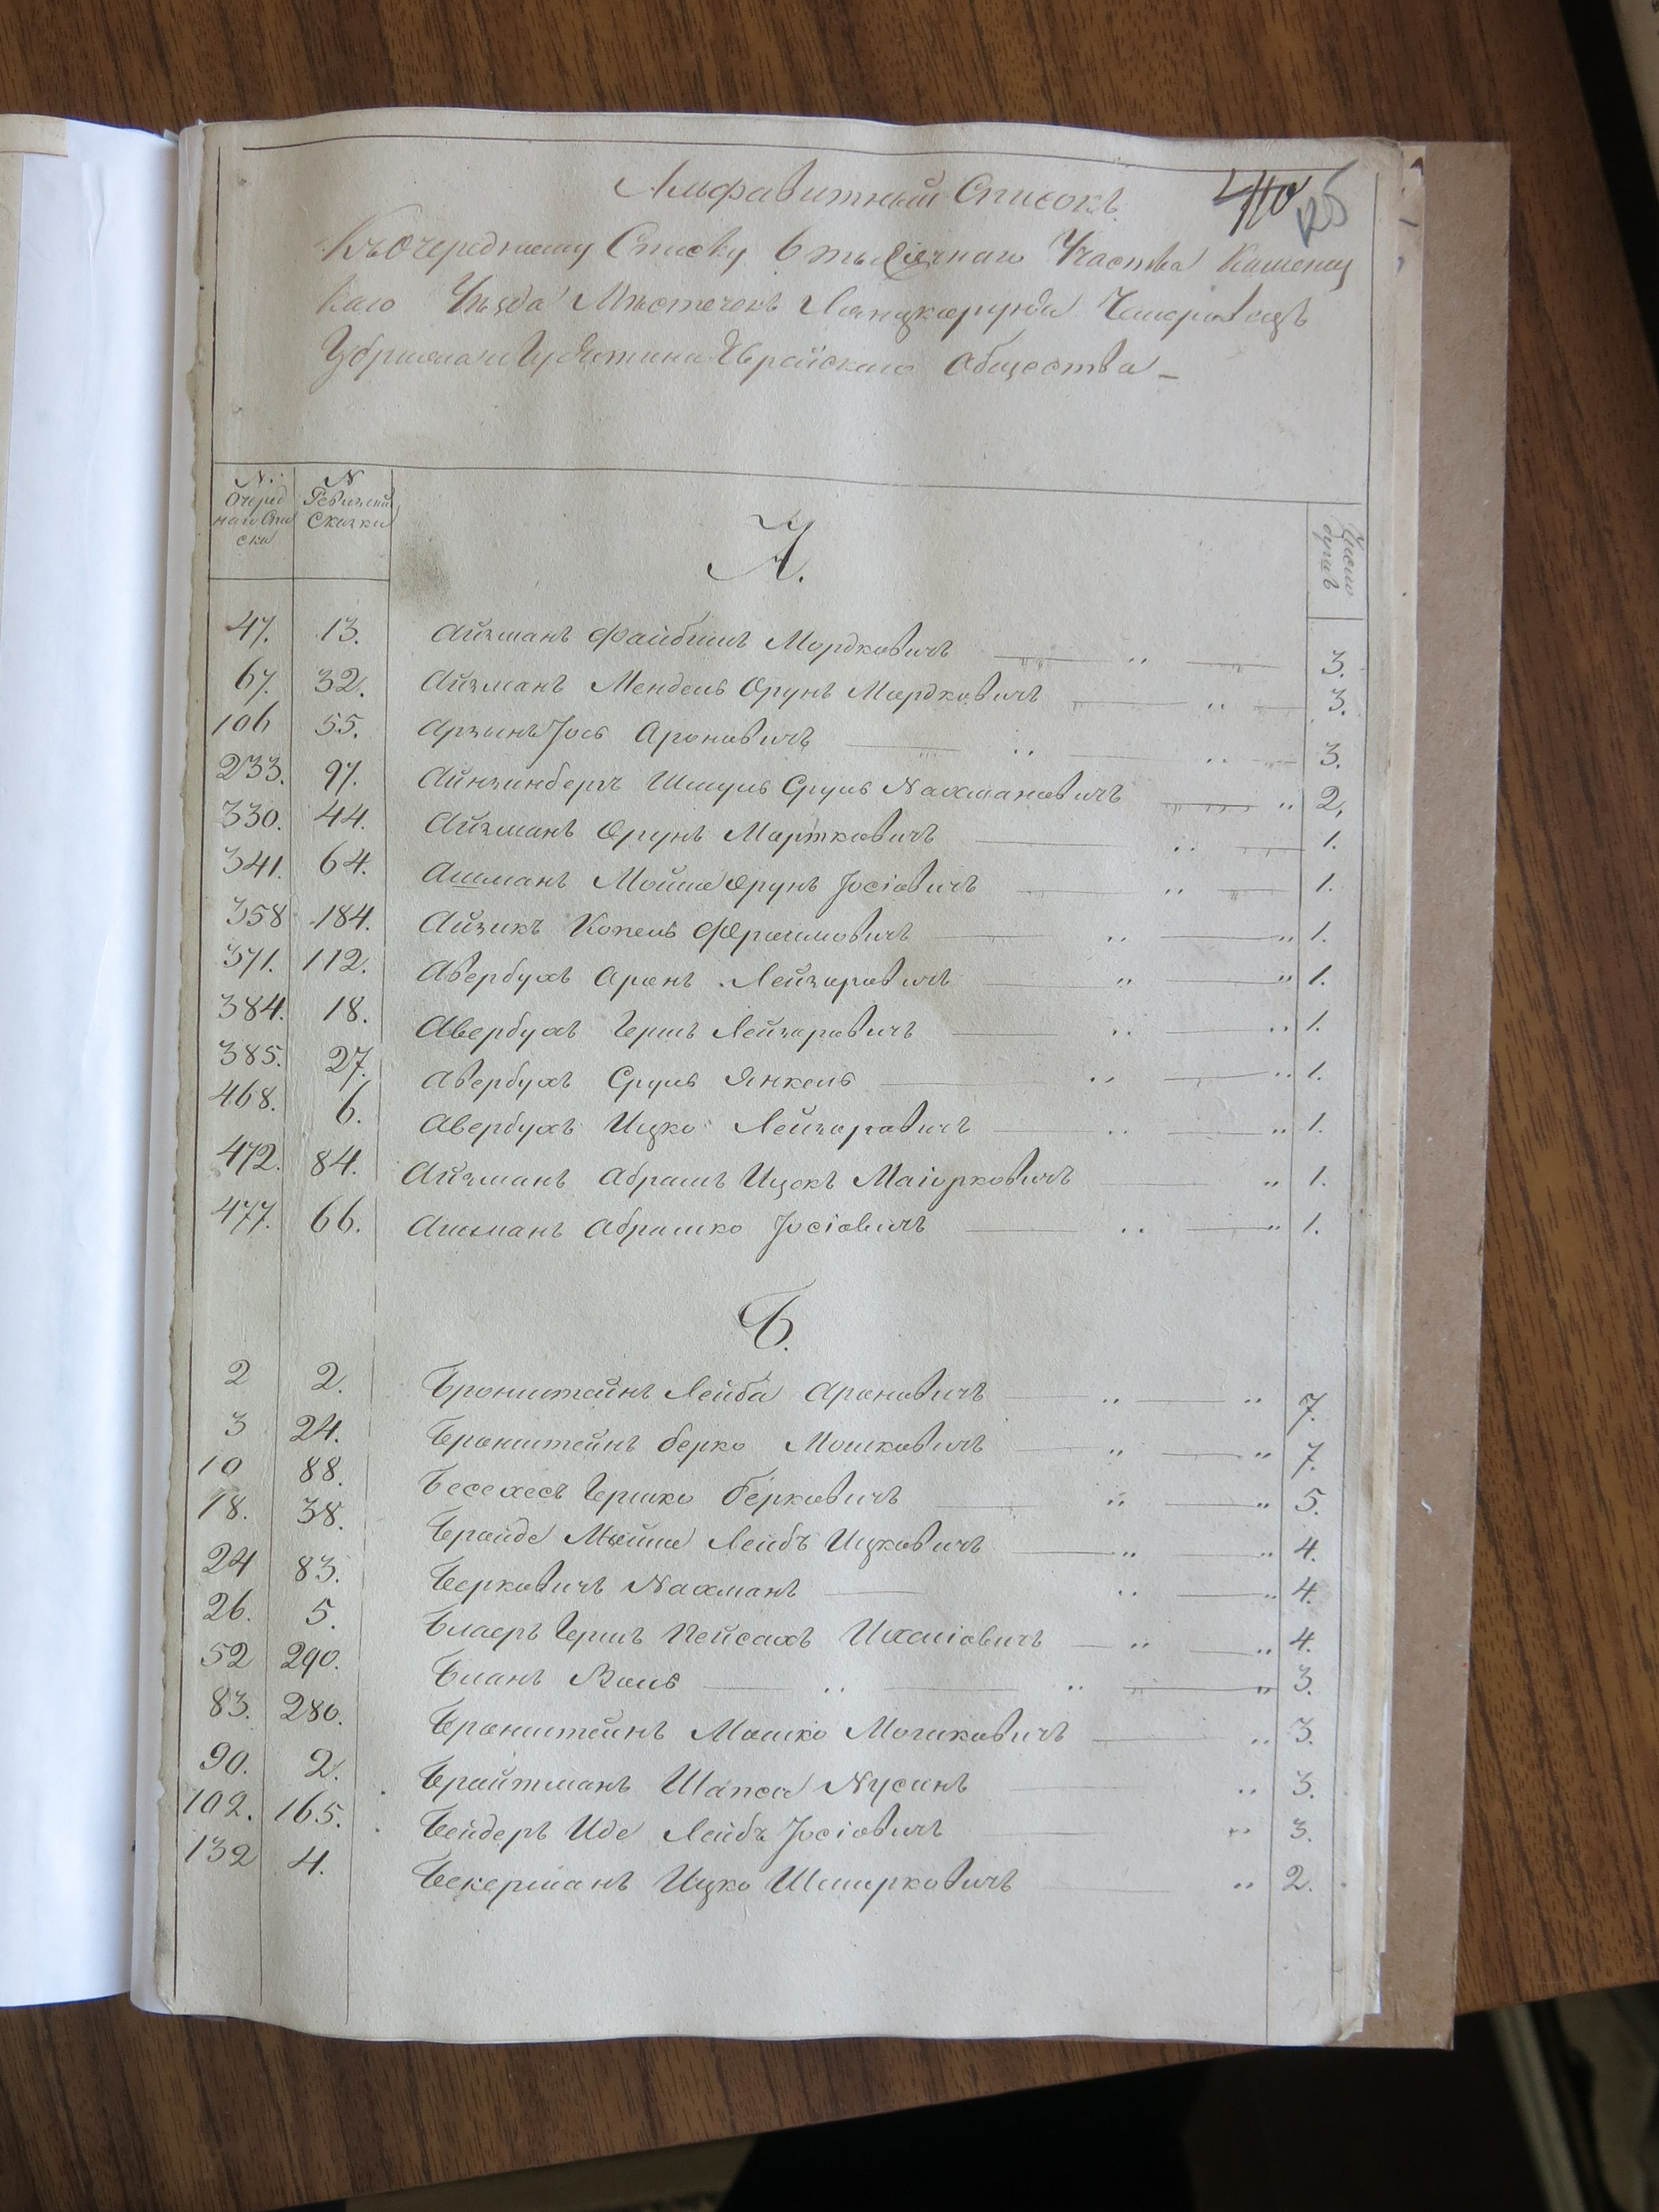 Алфавитный Списокъ
Къ Очередному Списку 6 тысячнаго Участка Каменец
каго Уѣзда Мѣстечекъ Лянцкоруня Чемеровецъ
Гусятина Еврейскаго Общества —
N. Очеред наго Спи ска
N Ревизской Сказки
Число душъ
А.
47. 13. Айзманъ Файбишъ Мордковичъ 3.
67. 32. Айзманъ Мендель Орунъ Мордковичъ 3.
106 55. Арзынъ Іось Ароновичъ 3.
233. 97. Айнзинбергъ Шмуль Сруль Nахмановичъ 2,
330. 44. Айзманъ Орунъ Мортковичъ 1.
341. 64. Ашманъ Мойша Орунъ Іосіовичъ 1.
358 184. Айзикъ Копель Фроимовичъ 1.
371. 112. Авербухъ Аронъ Лейзоровичъ 1.
384. 18. Авербухъ Гершъ Лейзоровичъ 1.
385. 27. Авербухъ Сруль Янкель 1.
468. 6. Авербухъ Ицко Лейзоровичъ 1.
472. 84. Айзманъ Абрамъ Ицекъ Маіорковичъ 1.
477. 66. Ашманъ Абрамко Іосіовичъ 1.
Б.
2 2. Бронштейнъ Лейба Ароновичъ 7.
3 24. Бронштейнъ Берко Мошковичъ 7.
10 88. Бесехесъ Гершко Берковичъ 5.
18. 38. Бройде Мойше Лейбъ Ицковичъ 4.
24 83. Берковичъ Nахманъ 4.
26. 5. Блаеръ Гершъ Пейсахъ Ихеліовичъ 4.
52 290. Бланъ Воль 3.
83. 280. Бронштейнъ Мошко Мошковичъ 3.
90. 2. Брайтманъ Шапса Nусинъ 3.
102. 165. Бейдеръ Иде Лейбъ Іосіовичъ 3.
132 4. Бекерманъ Ицко Шмирковичъ 2.